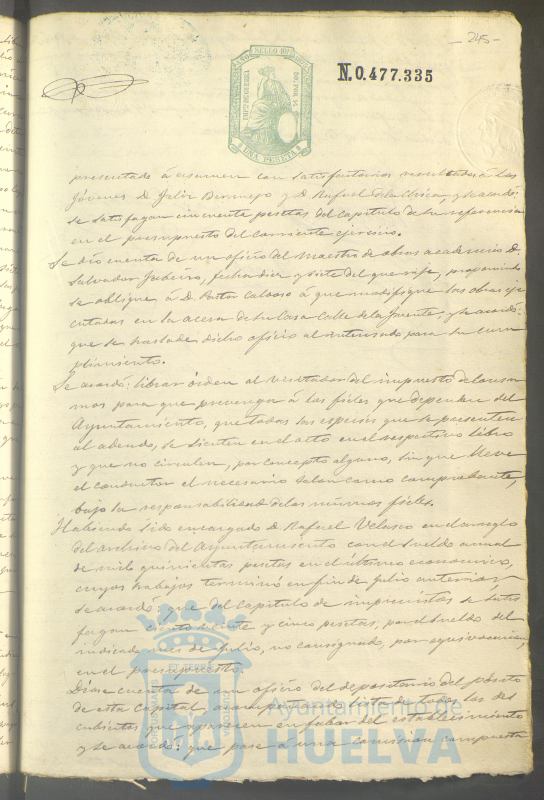 - 245 -
AÑO SELLO 10º
IMPTO DE GUERRA
UNA PESETA
N.0.477.335
presentado á examen con satisfactorios resultados á los
jóvenes D. Felix Bermejo y D. Rafael de la Chica, y se acordó:
se satisfagan cincuenta pesetas del capitulo de la referencia
en el presupuesto del corriente ejercicio.
Se dió cuenta de un oficio del Maestro de obras academico D.
Salvador fecha diez y siete del que rije, proponiendo
se obligue á D. Pastor Cardoso á que modifique las obras eje
cutadas en la acera de la Casa Calle de la Fuente, y se acordó:
que se traslade dicho oficio al interesado para su cum
plimiento.
Se acordó: librar órden al Visitador del impuesto de consu
mos para que prevenga á los fieles que dependen del
Ayuntamiento, que todas las especies que se presenten
al adeudo, se sienten en el acto en el respectivo libro
y que no circulen, por concepto alguno, sin que lleve
el conductor el necesario talon como comprobante,
bajo la responsabilidad de los mismos fieles.
Habiendo sido encargado D. Rafael Velasco en el arreglo
del archivo del Ayuntamiento con el sueldo anual
de mil quinientas pesetas en el último economico,
cuyos trabajos terminó en fin de Julio anterior,
se acordó: que del capitulo de imprevistos se satis
fagan ciento veinte y cinco pesetas, por el sueldo del
indicado mes de Julio, no consignado, por equivocacion,
en el presupuesto.
Dióse cuenta de un oficio del depositario del pósito
de esta Capital, acompañando lista de todos los des
cubiertos que aparecen en favor del establecimiento
y se acordó: que pase á una comision compuesta
Ayuntamiento de
HUELVA